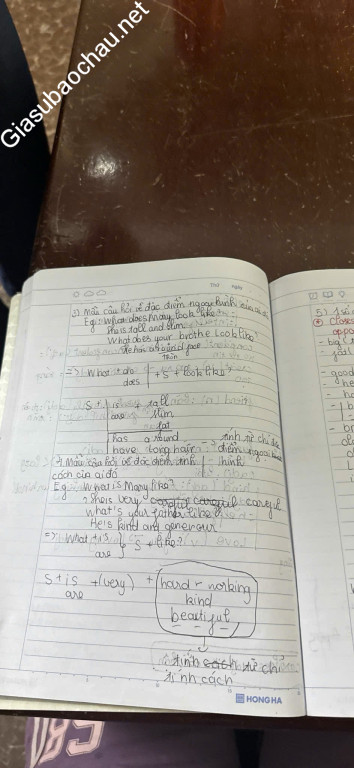 Giasubaochau.net
Thứ Ngày
3) Mẫu câu hỏi về đặc điểm ngoại hình của ai đó
Eg: What does Mary look like?
She is tall and slim
What does your brothe look like?
He has a round face
thin
=> What + do
does + S + look like?
S + is + tall
are slim
fat
has a round
have long hair
-> tính từ chỉ đặc
điểm ngoại hình
4. Mẫu câu hỏi về đặc điểm tính
cách của ai đó
Eg: What is Mary like?
She is very careful
What's your father like?
He is kind and generour
=> What + is
are S + like?
S + is + (very) + hard - working
are kind
beautiful
tính từ chỉ
tính cách
HONG HA
5)
Closes
oppo
- big
- good